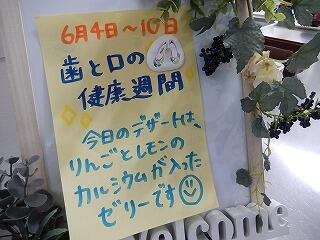 6月4日～10日
歯と口の
健康週間
今日のデザートは、
りんごとレモンの
カルシウムが入った
ゼリーです
welcome